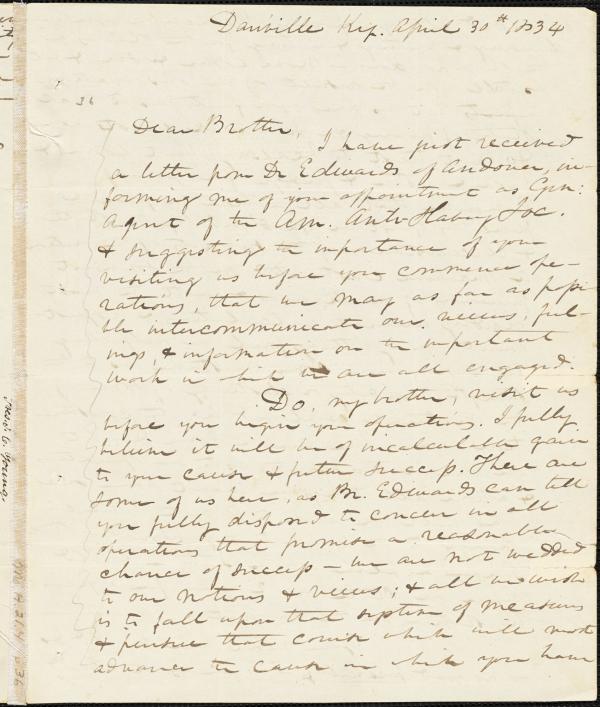 Danville Ky. April 30th 1834
36
Dear Brother,
I have just received
a letter from Dr Edwards of Andover, in-
forming me of your appointment as Gen:
Agent of the Am. Anti-Slavery Soc.
& suggesting the importance of your
visiting us before you commence ope-
rations, that we may as far as possi-
ble intercommunicate our views, feel-
ings, & information on the important
work in which we are all engaged.
Do, my brother, visit us
before you begin your operations. I fully
believe it will be of incalculable gain
to your cause & future success. There are
some of us here, as Br. Edwards can tell
you fully disposed to concur in all
operations that promise a reasonable
chance of success – we are not wedded
to our notions & views; & all we wish
is to fall upon that system of measures
& pursue that course which will most
advance the cause in which you have
Young.